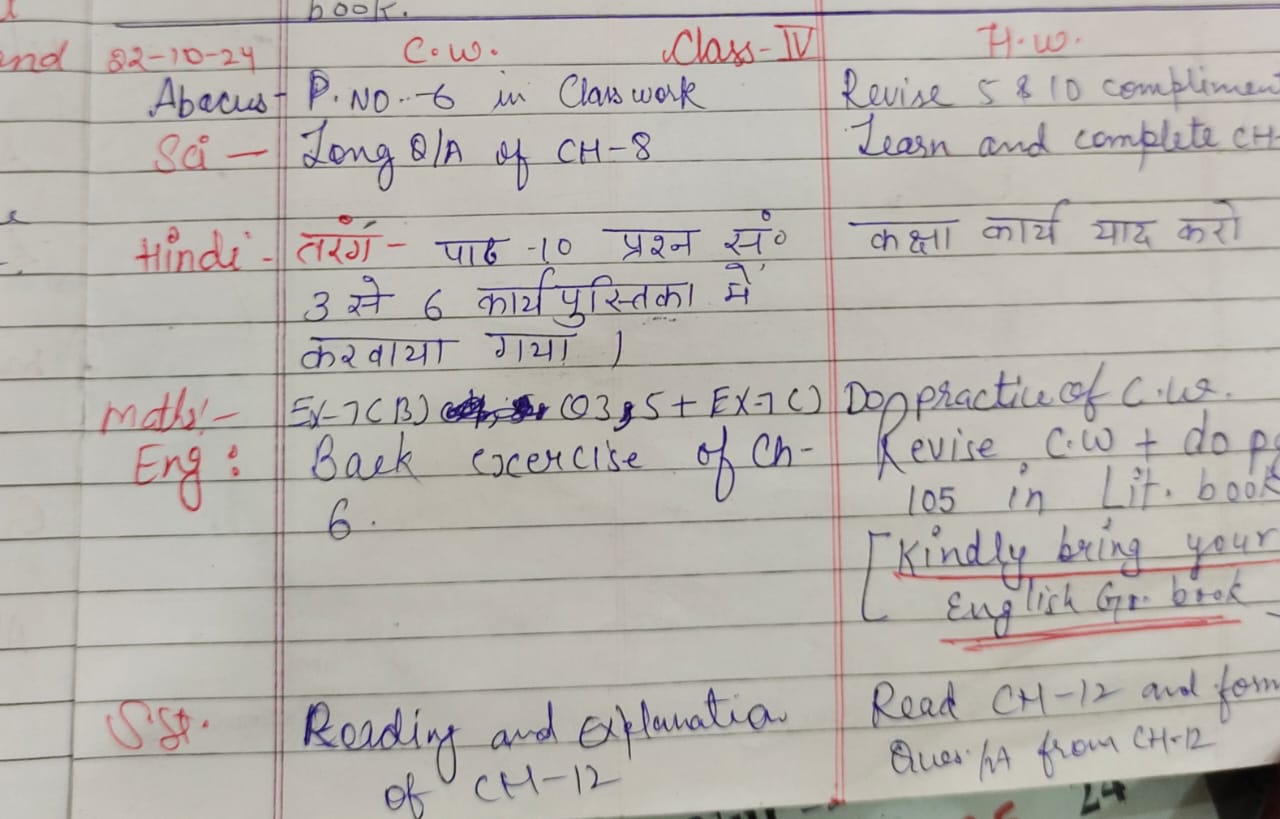 book.
nd 02-10-24 C.W. Class-IV H.W.
Abacus- P.NO.-6 in Classwork Revise 5 & 10 compliment
Sci - Long Q/A of CH-8 Learn and complete CH-
Hindi - तरंग - पाठ -10 प्रश्न सं० कक्षा कार्य याद करो
3 से 6 कार्यपुस्तिका में
करवाया गया ।
Maths:- EX-7(B) (Q3,5 + EX-7C) Do practice of C.W.
Eng: Back excercise of Ch- Revise C.W + do pg
6. 105 in Lit. book
[Kindly bring your
English Gr. book
SSt. Reading and Explanation Read CH-12 and form
of CH-12 Ques/A from CH-12
24